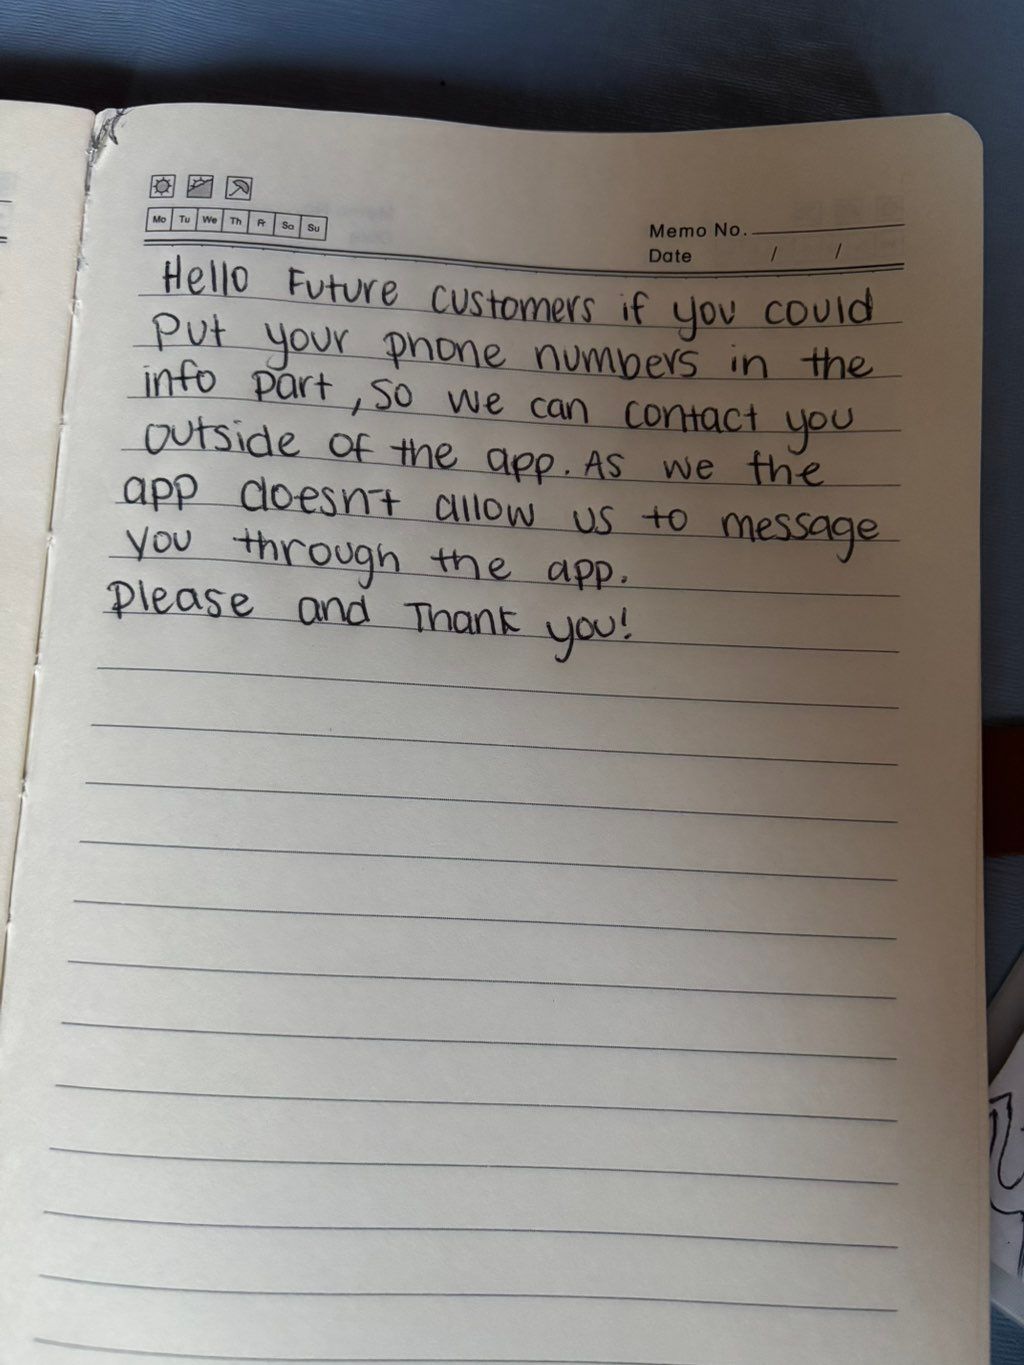 Mo Tu We Th Fr Sa Su
Memo No.
Date / /
Hello Future customers if you could
put your phone numbers in the
info part, so we can contact you
outside of the app. As we the
app doesn't allow us to message
you through the app.
Please and Thank you!